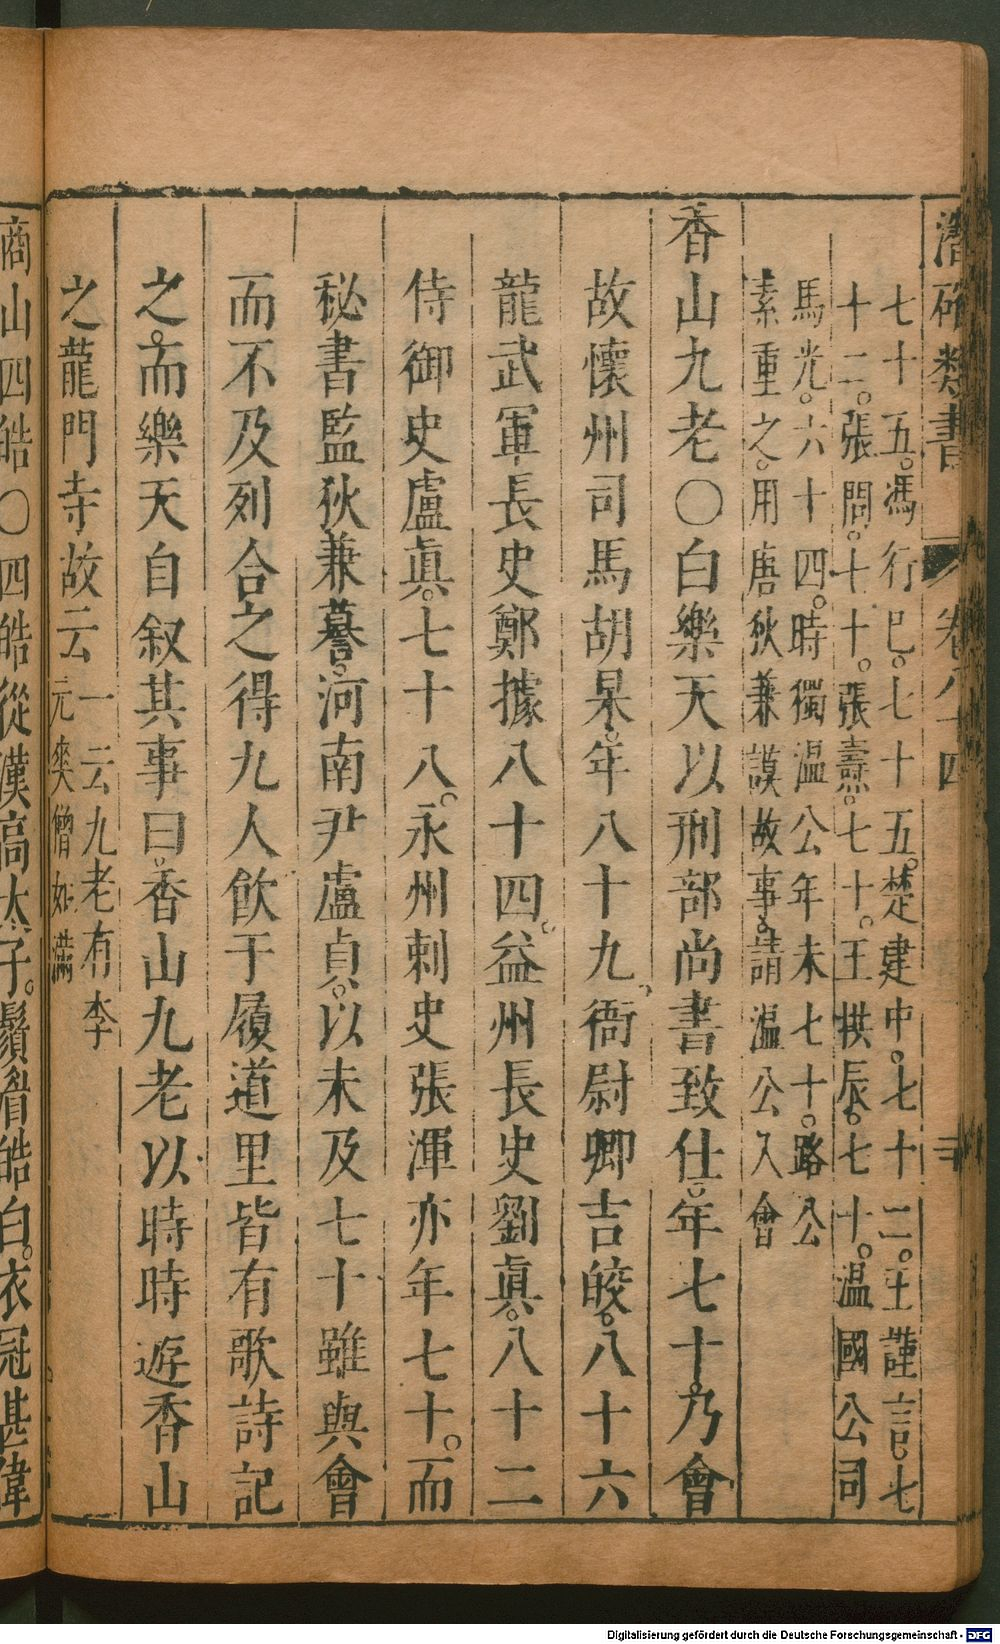 潛確類書 卷八十四 三
七十五。馮行巳。七十五。楚建中。七十二。王謹言。七
十二。張問。七十。張燾。七十。王拱辰。七十。溫國公司
馬光。六十四。時獨溫公年未七十。路公
素重之。用唐狄兼謨故事。請溫公入會
香山九老〇白樂天以刑部尚書致仕。年七十。乃會
故懷州司馬胡杲。年八十九。衞尉卿吉皎。八十六
龍武軍長史鄭據八十四。益州長史劉眞。八十二
侍御史盧眞。七十八。永州刺史張渾亦年七十。而
秘書監狄兼謩。河南尹盧貞。以未及七十雖與會
而不及列合之得九人飲于履道里皆有歌詩記
之。而樂天自叙其事曰。香山九老以時時遊香山
之龍門寺故云
一云九老有李
元爽僧如滿
商山四皓〇四皓從漢高太子。鬚眉皓白。衣冠甚偉
Digitalisierung gefördert durch die Deutsche Forschungsgemeinschaft - DFG